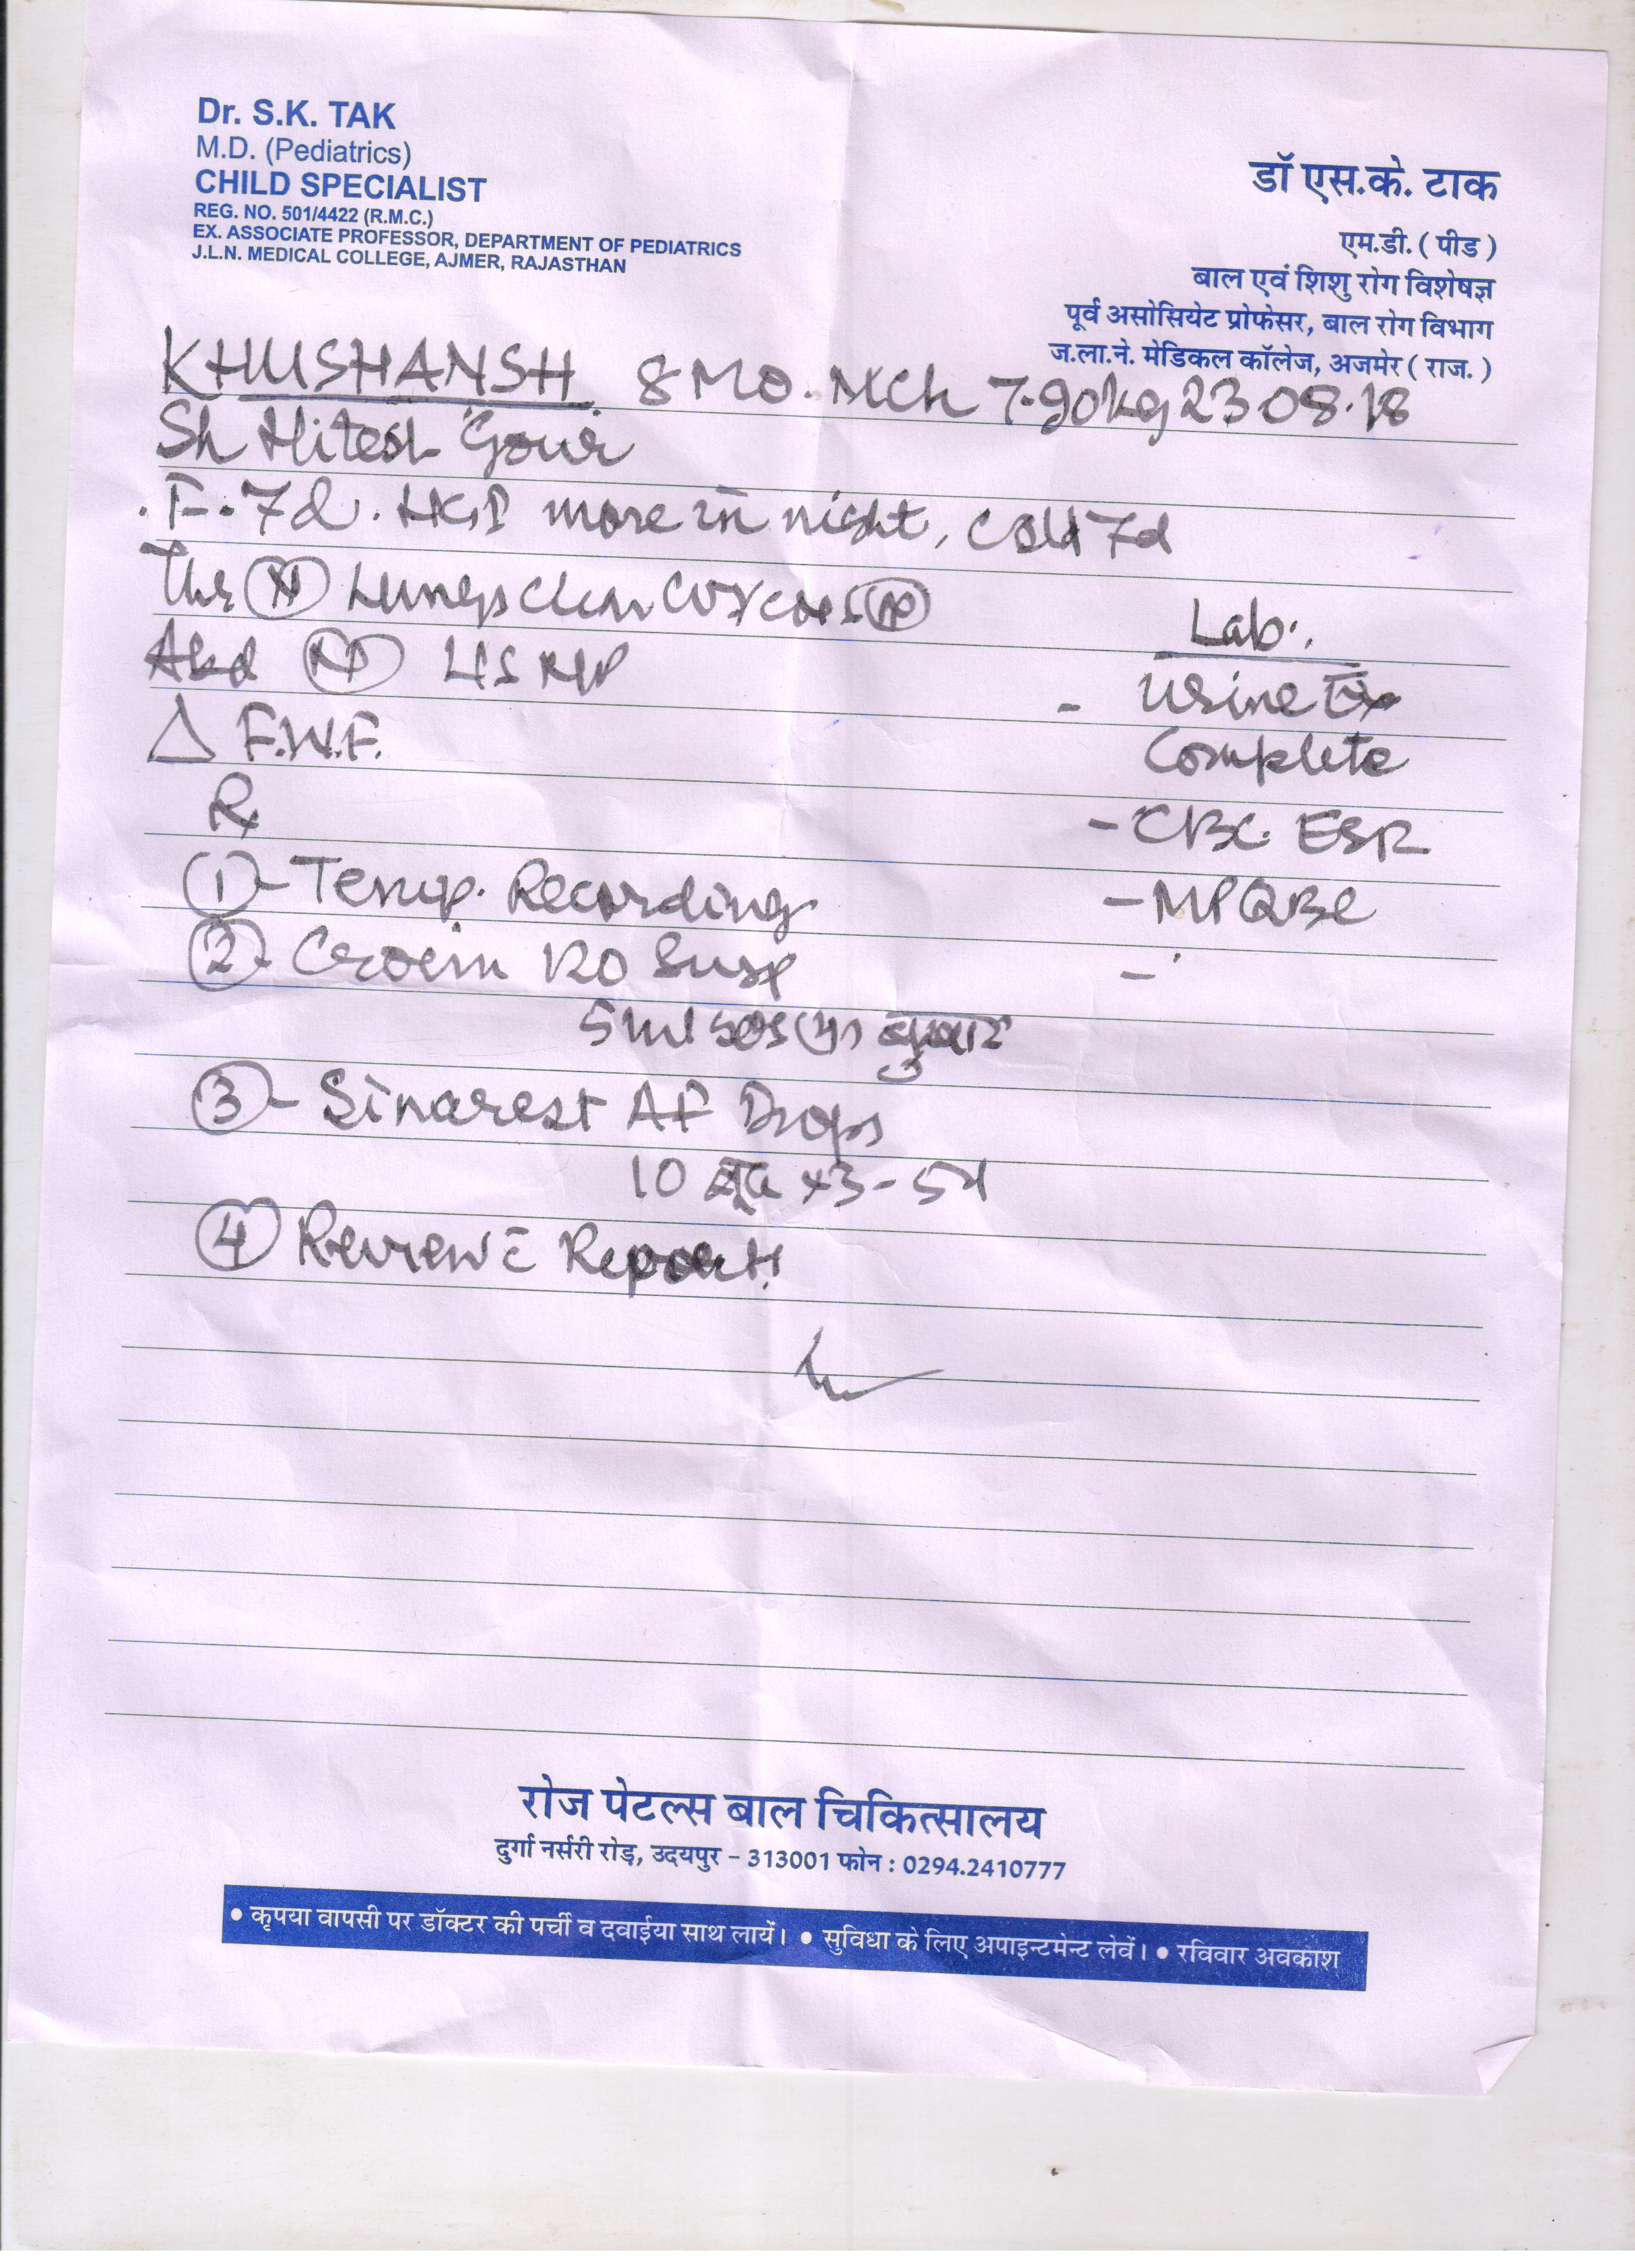 Dr. S.K. TAK
M.D. (Pediatrics)
CHILD SPECIALIST
REG. NO. 501/4422 (R.M.C.)
EX. ASSOCIATE PROFESSOR, DEPARTMENT OF PEDIATRICS
J.L.N. MEDICAL COLLEGE, AJMER, RAJASTHAN
डॉ एस.के. टाक
एम.डी. ( पीड )
बाल एवं शिशु रोग विशेषज्ञ
पूर्व असोसियेट प्रोफेसर, बाल रोग विभाग
ज.ला.ने. मेडिकल कॉलेज, अजमेर ( राज. )
KHUSHANSH. 8 MO. MCh 7.90kg 23.08.18
Sh Hitesh Gour
F. 7d. more in night, cold 7d
(N) Lungs clear CVS (N)
Abd (N)
△ F.W.F.
Rx
① - Temp. Recording
② - Crocin 120 Susp
5ml बुखार
③ - Sinarest AF Drops
10 बूंद x3 - 5d
④ Review c̄ Report.
Lab.
- Urine Ex
Complete
- CBC. ESR
- MP QBC
-
रोज पेटल्स बाल चिकित्सालय
दुर्गा नर्सरी रोड़, उदयपुर – 313001 फोन : 0294.2410777
• कृपया वापसी पर डॉक्टर की पर्ची व दवाईया साथ लायें। • सुविधा के लिए अपाइन्टमेन्ट लेवें। • रविवार अवकाश